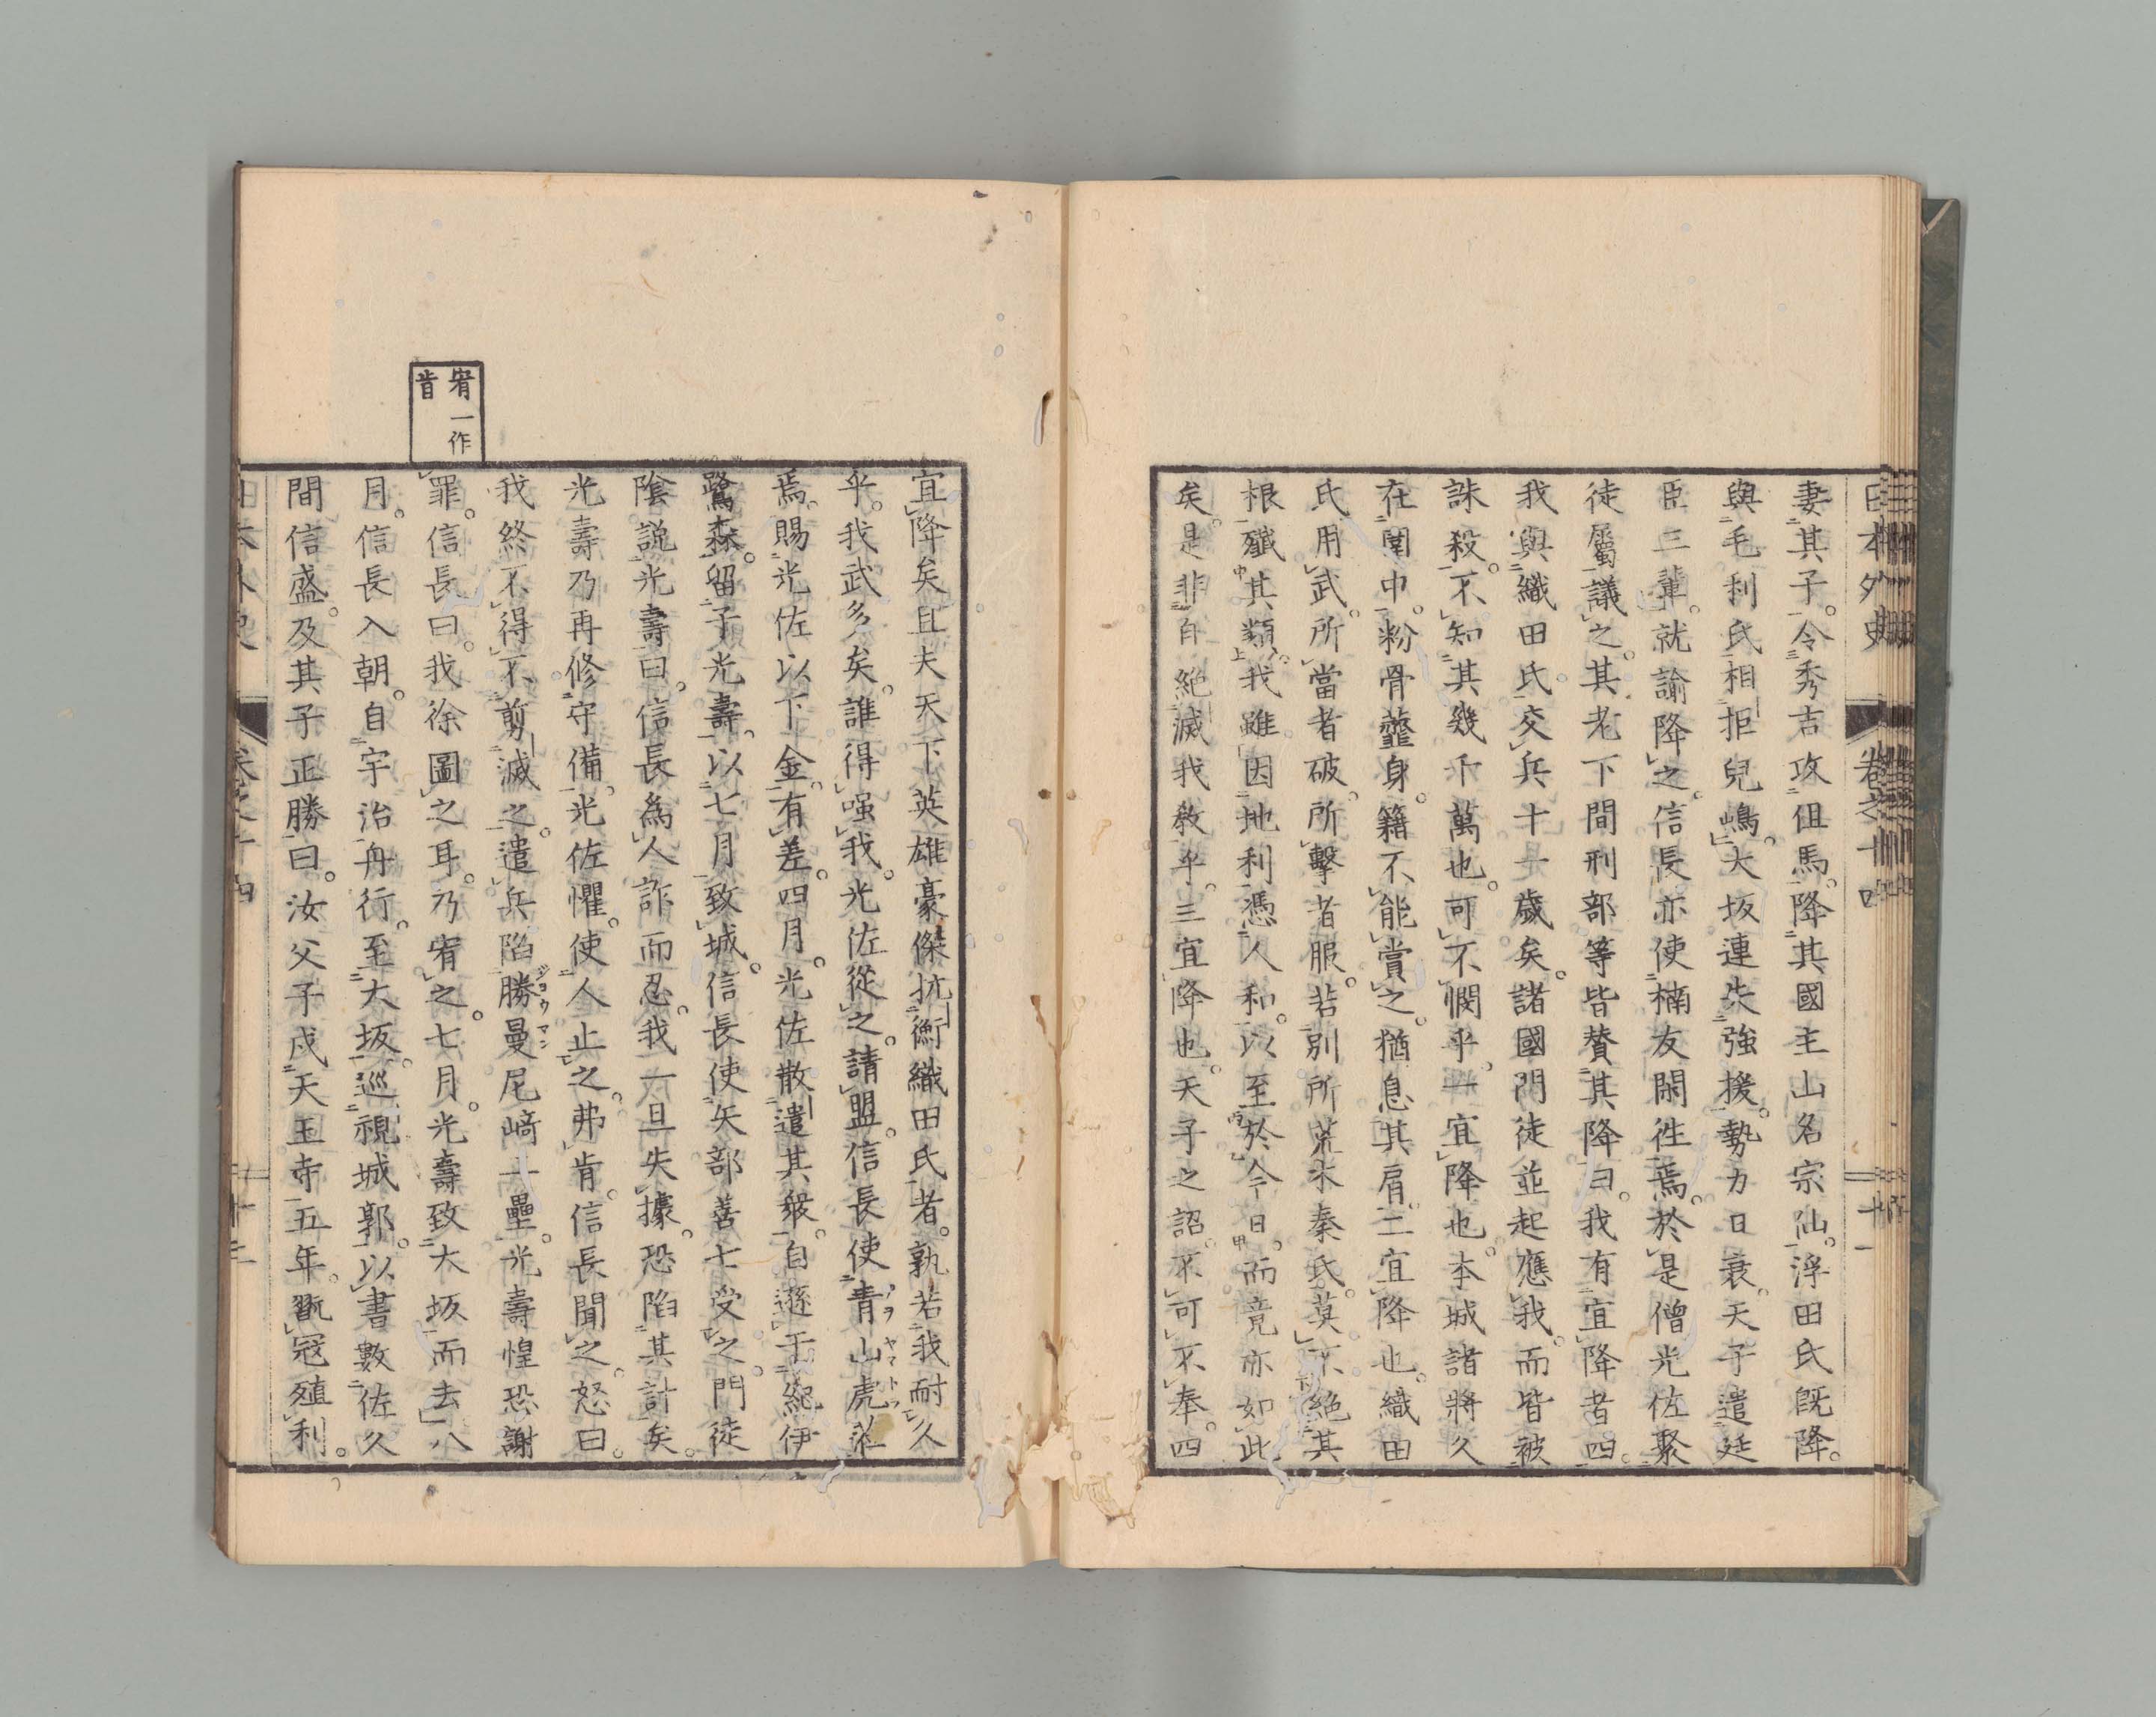 日本外史 卷之十四 十一
妻其子。令秀吉攻但馬。降其國主山名宗仙。浮田氏旣降。
與毛利氏相拒兒嶋。大坂連失強援。勢力日衰。天子遣廷
臣三輩。就諭降之。信長亦使楠友閑往焉。於是僧光佐聚
徒屬議之。其老下間刑部等皆賛其降曰。我有宜降者四。
我與織田氏。交兵十一歲矣。諸國門徒並起應我。而皆被
誅殺。不知其幾千萬也。可不憫乎。一宜降也。本城諸將久
在圍中。粉骨虀身。籍不能賞之。猶息其肩。二宜降也。織田
氏用武。所當者破。所擊者服。若別所荒木秦氏。莫不絕其
根殲其類。我雖因地利憑人和。以至於今日。而竟亦如此
矣。是非自絕滅我敎乎。三宜降也。天子之詔。不可不奉。四
宜降矣。且夫天下英雄豪傑抗衡織田氏者。孰若我耐久
乎。我武多矣。誰得嗤我。光佐從之。請盟。信長使青山虎莅
アヲヤマトラ
焉。賜光佐以下金。有差。四月。光佐散遣其衆。自遜于紀伊
鷺森。留子光壽。以七月致城。信長使矢部善七受之。門徒
陰説光壽曰。信長爲人詐而忍。我一旦失據。恐陷其計矣。
光壽乃再修守備。光佐懼。使人止之。弗肯。信長聞之。怒曰。
我終不得不剪滅之。遣兵陷勝曼尼﨑十壘。光壽惶恐謝
ジヨウマン
罪。信長曰。我徐圖之耳。乃宥之。七月。光壽致大坂而去。八
月。信長入朝。自宇治舟行。至大坂。巡視城郭。以書數佐久
間信盛。及其子正勝曰。汝父子戍天王寺五年。翫冦殖利。
宥一作
肯
日本外史 卷之十四 十二